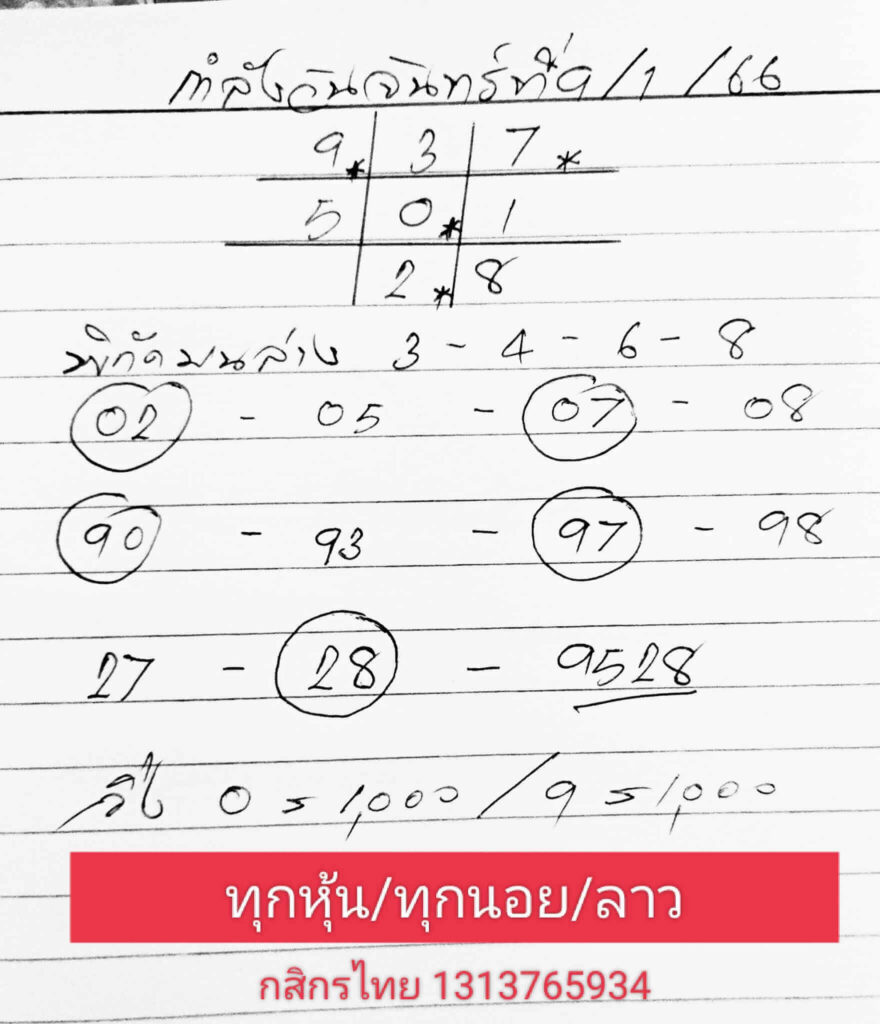 กำลังวันจันทร์ที่ 9/1/66
9* 3 7*
5 0* 1
2* 8
พิกัดบนล่าง 3 - 4 - 6 - 8
02 - 05 - 07 - 08
90 - 93 - 97 - 98
27 - 28 - 9528
วิ่ง 0 = 1,000 / 9 = 1,000
ทุกหุ้น/ทุกนอย/ลาว
กสิกรไทย 1313765934